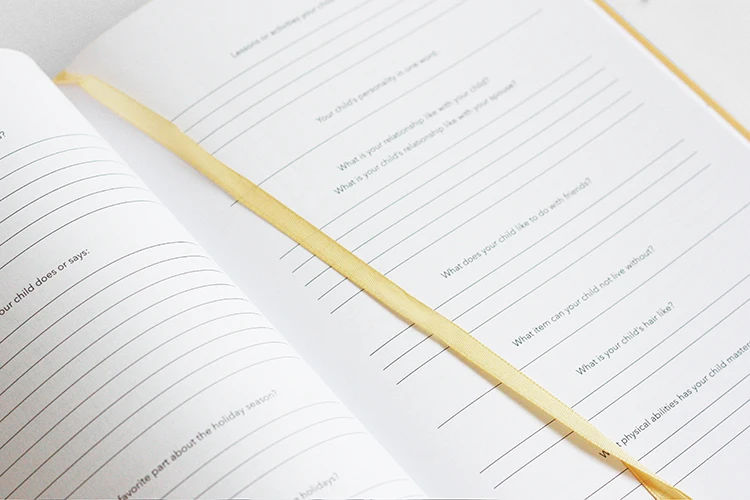 ?
our child does or says:
favorite part about the holiday season?
holidays?
Lessons or activities your
Your child's personality in one word:
What is your relationship like with your child?
What is your child's relationship like with your spouse?
What does your child like to do with friends?
What item can your child not live without?
What is your child's hair like?
physical abilities has your child